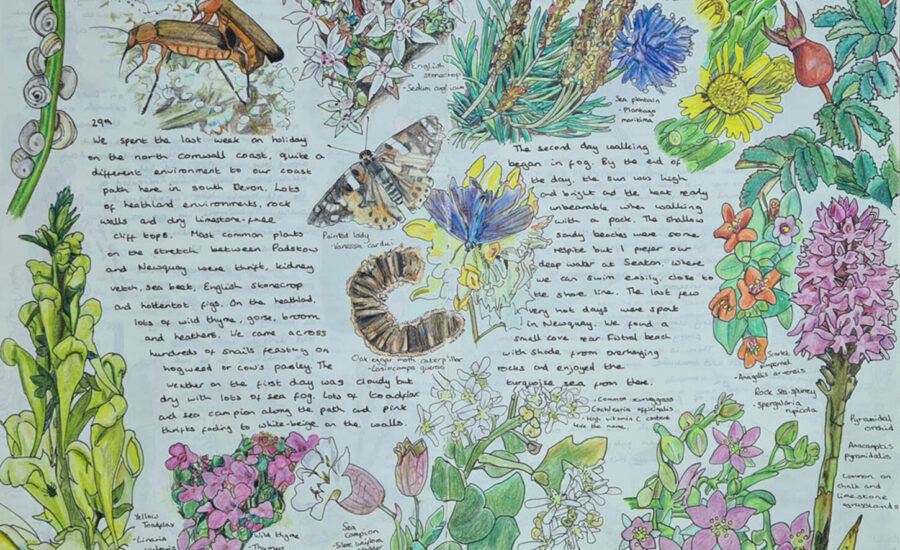 English
stonecrop
- Sedum anglicum
Sea plantain
- Plantago
maritima
29th
We spent the last week on holiday
on the north Cornwall coast, quite a
different environment to our coast
path here in south Devon. Lots
of heathland environments, rock
walls and dry limestone-free
cliff tops. Most common plants
on the stretch between Padstow
and Newquay were thrift, kidney
vetch, sea beet, English stonecrop
and hottentot figs. On the heathland,
lots of wild thyme, gorse, broom
and heathers. We came across
hundreds of snails feasting on
hogweed or cow's parsley. The
weather on the first day was cloudy but
dry with lots of sea fog. Lots of toadflax
and sea campion along the path and pink
thrifts fading to white-beige on the walls.
Painted lady
Vanessa cardui
Oak eggar moth caterpillar
- Lasiocampa quercus
The second day walking
began in fog. By the end of
the day, the sun was high
and bright and the heat really
unbearable when walking
with a pack. The shallow
sandy beaches were some
respite but I prefer our
deep water at Seaton, where
we can swim easily, close to
the shore line. The last few
very hot days were spent
in Newquay. We found a
small cove near Fistral beach
with shade from overhanging
rocks and enjoyed the
turquoise sea from there.
- Common scurvygrass
Cochlearia officinalis
- High vitamin C content
hence the name.
Scarlet
pimpernel
- Anagallis arvensis
Rock sea-spurrey
- Spergularia
rupicola
Pyramidal
orchid
Anacamptis
pyramidalis
Common on
chalk and
limestone
grasslands
Yellow
Toadflax
- Linaria
vulgaris
Wild thyme
- Thymus
Sea
campion
- Silene uniflora